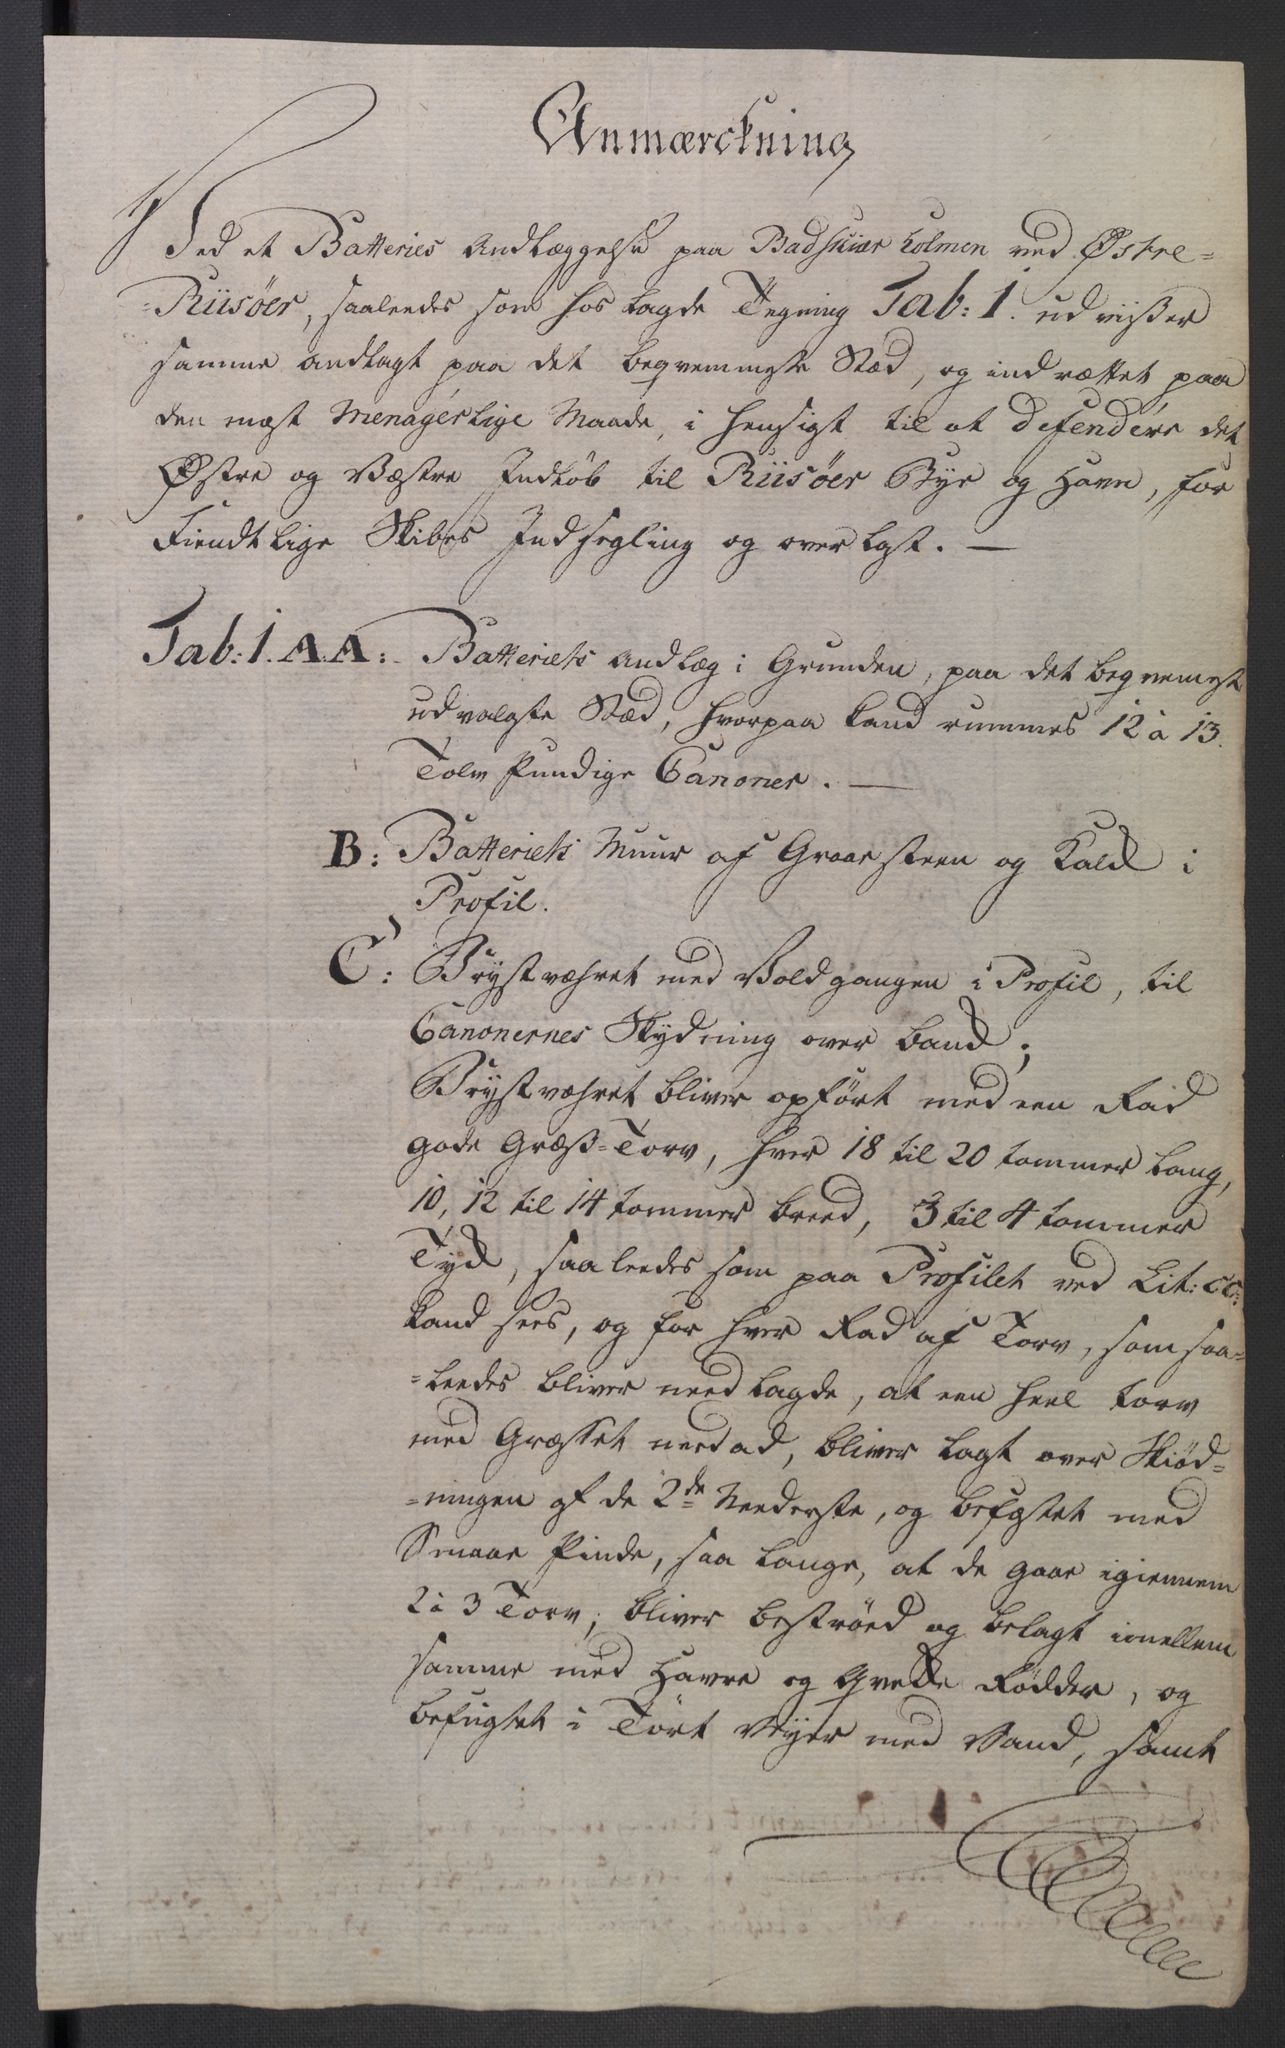 Anmærckning
Ved et Batteries Andlæggelse paa Badskiær Holmen ved Østre-
-Riisøer, saaleedes som hos lagde Tegning Tab: 1. udviiszer
samme andlagt paa det beqvemmeste Stæd, og indrættet paa
den mæst Menagerlige Maade, i Hensigt til at defendere det
Østre og Væstre Indløb til Riisøer Bye og Havn, for
Fiendtlige Skibes Indsegling og overlast. —
Tab: 1. A.A: Batteriets Andlæg i Grunden, paa det beqvemeste
udvalgte Stæd, hvorpaa kand rummes 12 à 13.
Tolv Pundige Canoner. —
B: Batteriets Muur af Graaesteen og Kalck i
Profil.
C: Brystvæhret med Voldgangen i Profil, til
Canonernes Skydning over banck;
Brystvæhret bliver opført med een Rad
gode Græsz-Torv, hver 18 til 20 tommer lang,
10, 12 til 14 tommer breed, 3 til 4 tommer
Tyck, saaleedes som paa Profilet ved Lit: CC:
kand sees, og for hver Rad af Torv, som saa-
-leedes bliver needlagde, at een heel torv
med Græsset neerad, bliver lagt over Skiød-
-ningen af de 2de Neederste, og befæstet med
Smaae Pinde, saa lange, at de gaae igiennem
2 à 3 Torv; bliver bestrøed og belagt imellem
samme med Havre og Qvecke Rødder, og
befugtet i Tørt Veyer med Vand, samt